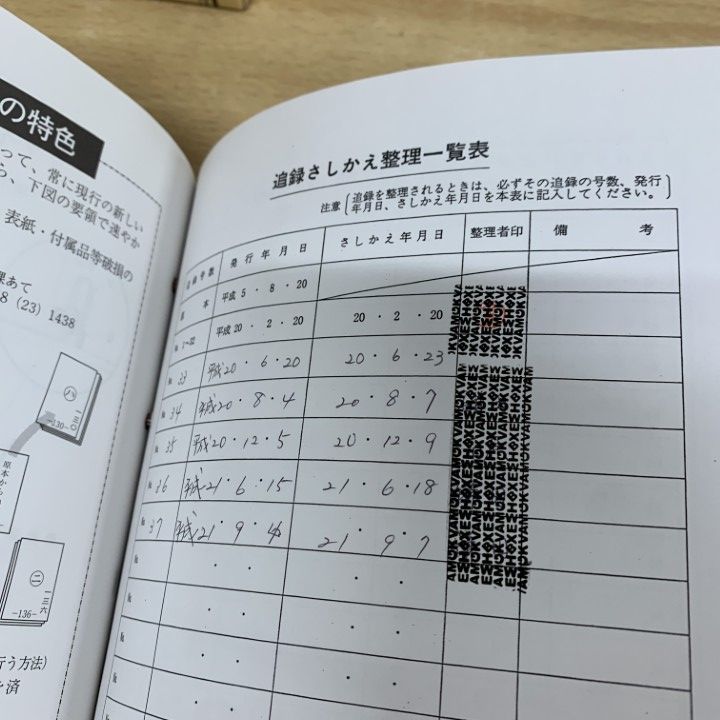 の特色
って、常に現行の新しい
ら、下図の要領で速やか
表紙・付属品等破損の
課あて
8（23）1438
ハ
一三〇
-130-
二
一三六
-136-
行う方法）
追録さしかえ整理一覧表
注意（追録を整理されるときは、必ずその追録の号数、発行
年月日、さしかえ年月日を本表に記入してください。）
追録号数 発行年月日 さしかえ年月日 整理者印 備考
原本 平成 5・8・20
平成20・2・20 20・2・20
No. 33 平成20・6・20 20・6・23
No. 34 平成20・8・4 20・8・7
No. 35 平成20・12・5 20・12・9
No. 36 平成21・6・15 21・6・18
No. 37 平成21・9・4 21・9・7
No. ・・ ・・
No. ・・ ・・
No. ・・ ・・
No. ・・ ・・